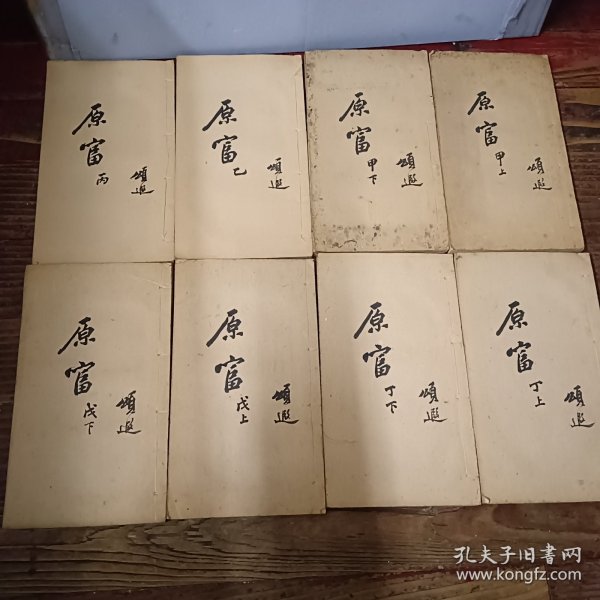 原富 甲上
頌遐
原富 甲下
頌遐
原富 乙
頌遐
原富 丙
頌遐
原富 丁上
頌遐
原富 丁下
頌遐
原富 戊上
頌遐
原富 戊下
頌遐
孔夫子旧书网
www.kongfz.com